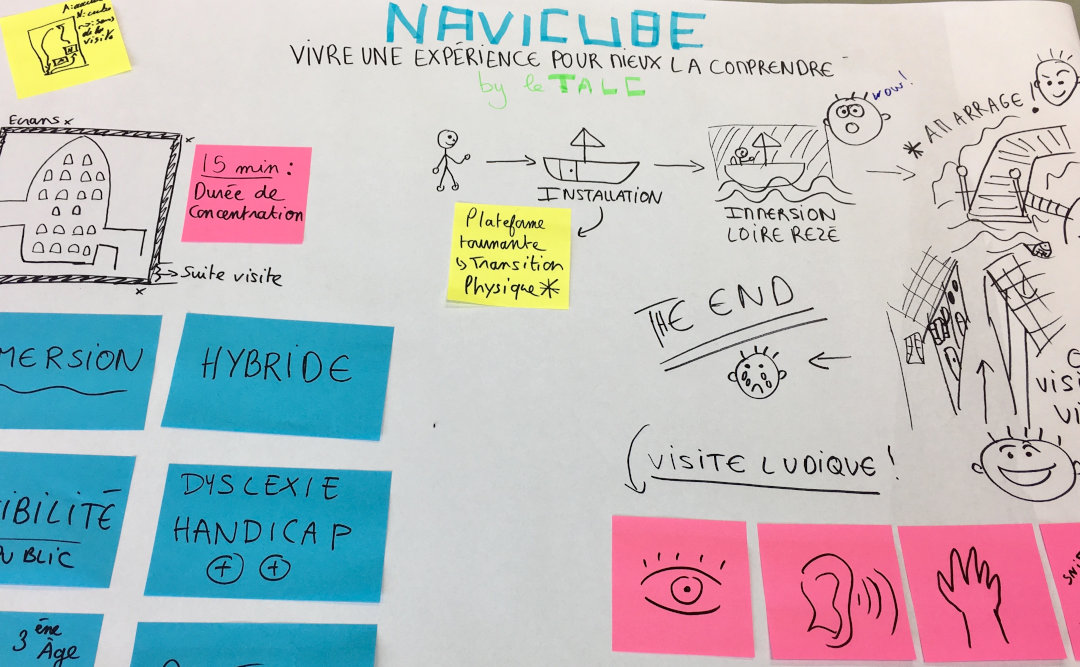 NAVICUBE
VIVRE UNE EXPÉRIENCE POUR MIEUX LA COMPRENDRE
by le TALC
de la
visite
Ecrans x
15 min :
Durée de
Concentration
Suite visite
INSTALLATION
Plateforme
tournante
↳ Transition
Physique *
WOW!
IMMERSION
LOIRE REZÉ
* AMARRAGE !
THE END
MERSION
HYBRIDE
IBILITÉ
PUBLIC
DYSLEXIE
HANDICAP
+ +
3ème
Âge
VISI
VI
VISITE LUDIQUE !
SNI